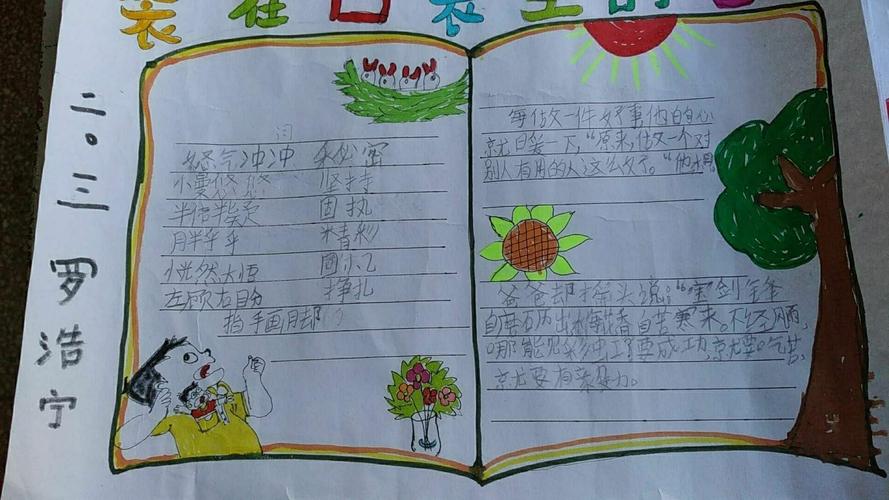 装在口袋里的
二〇三
罗浩宁
词
怒气冲冲 秘密
慢悠悠 坚持
半信半疑 固执
胖乎乎 精彩
恍然大悟
左顾右盼 挣扎
指手画脚
每做一件好事他的心
就白笑一下,“原来,做一个对
别人有用的人这么好了。“他想
爸爸却摇头说:“宝剑锋
自磨石历出梅花香自苦寒来。不经风雨,
哪能见彩虹了要成功,就要吃苦,
就要有